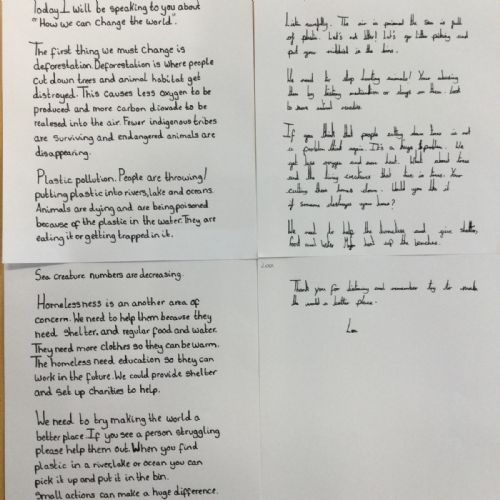 Today I will be speaking to you about
"How we can change the world".
The first thing we must change is
deforestation. Deforestation is where people
cut down trees and animal habitat get
distroyed. This causes less oxygen to be
produced and more carbon dioxade to be
realesed into the air. Fewer indigenous tribes
are surviving and endangered animals are
disappearing.
Plastic pollution. People are throwing/
putting plastic into rivers, lake and oceans.
Animals are dying and are being poisoned
because of the plastic in the water. They are
eating it or getting trapped in it.
Sea creature numbers are decreasing.
Homelessness is an another area of
concern. We need to help them because they
need shelter, and regular food and water.
They need more clothes so they can be warm.
The homeless need education so they can
work in the future. We could provide shelter
and set up charities to help.
We need to try making the world a
better place. If you see a person struggling
please help them out. When you find
plastic in a river, lake or ocean you can
pick it up and put it in the bin.
Small actions can make a huge difference.
The air is poisoned the sea is full
of plastic. Let's not litter! Let's go litter picking and
put your rubbish in the bins.
We need to stop hunting animals! Your
them by
If you think that people cutting down trees is not
a problem think again. It's a huge problem. We
get less oxygen and more heat. What about trees
and the living creatures that live in trees. Your
cutting their homes down. Would you like it
if someone destroys your home?
We need to help the homeless and give shelter,
food and water.
Thank you for listening and remember try to make
the world a better place.